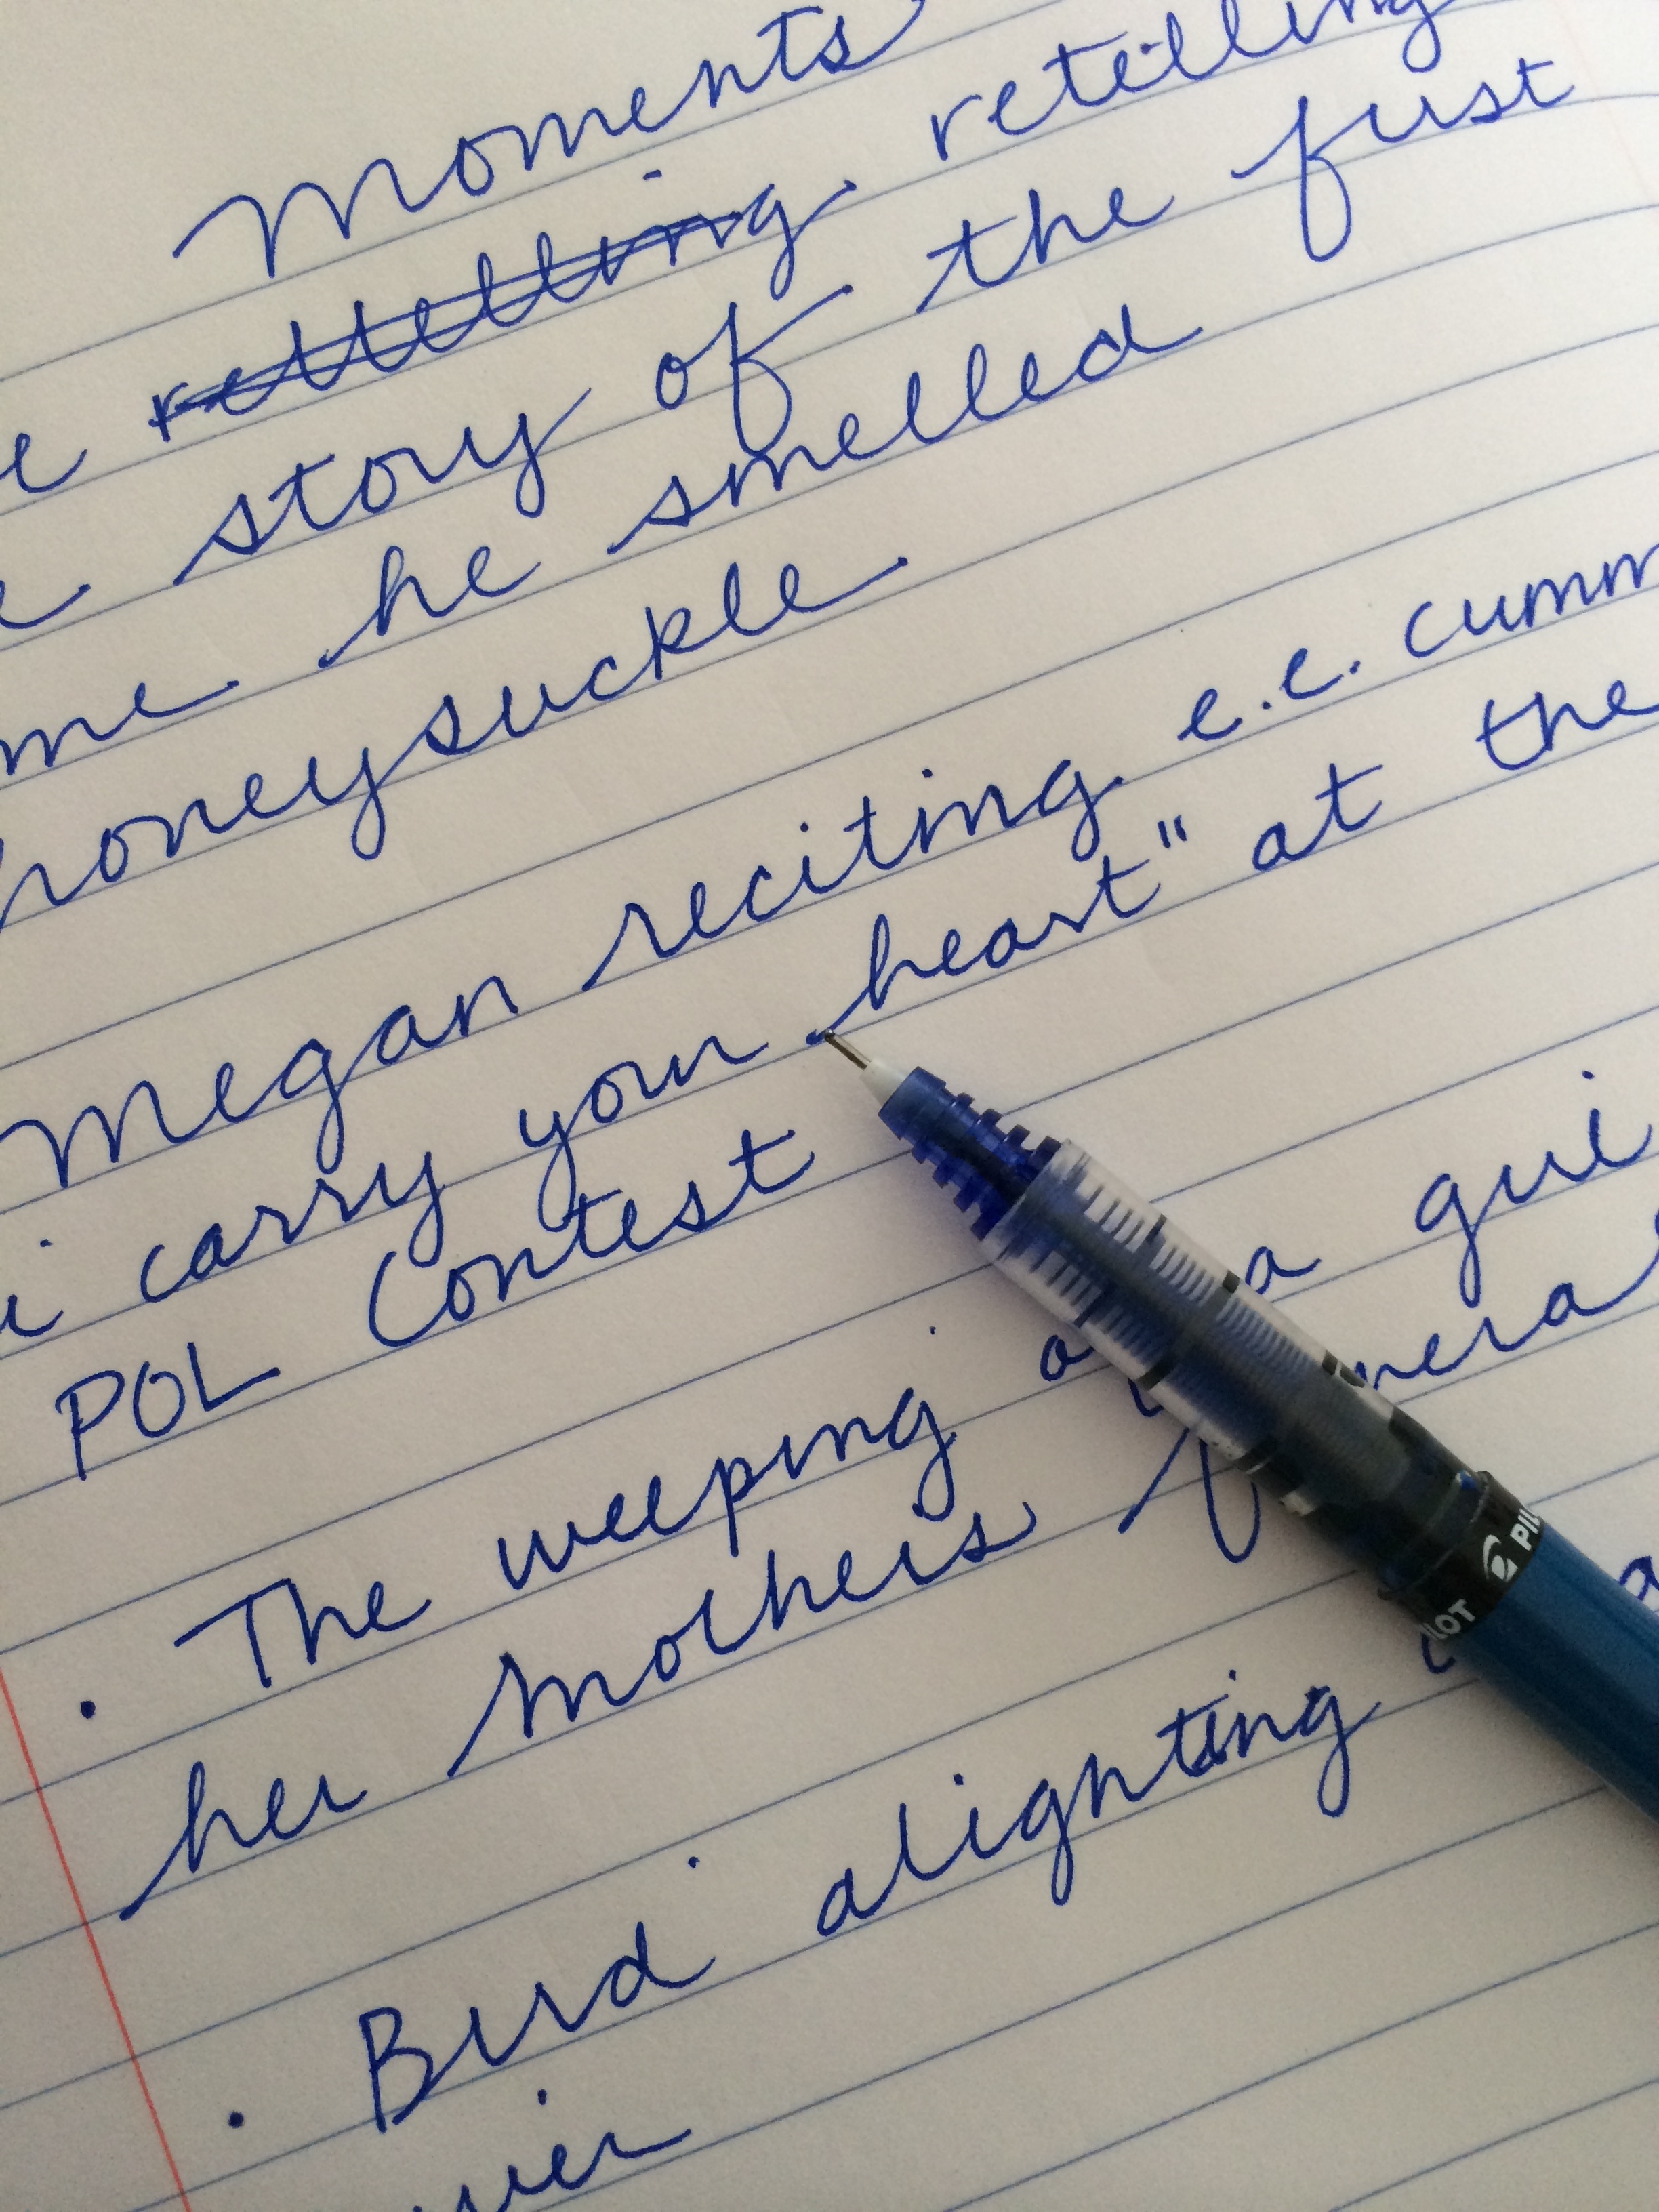 Moments
retelling retelling
story of the first
he smelled
honeysuckle
Megan reciting e.e. cumm
i carry your heart" at the
POL Contest
• The weeping a gui
her mothers funeral
• Bird alighting
PILOT